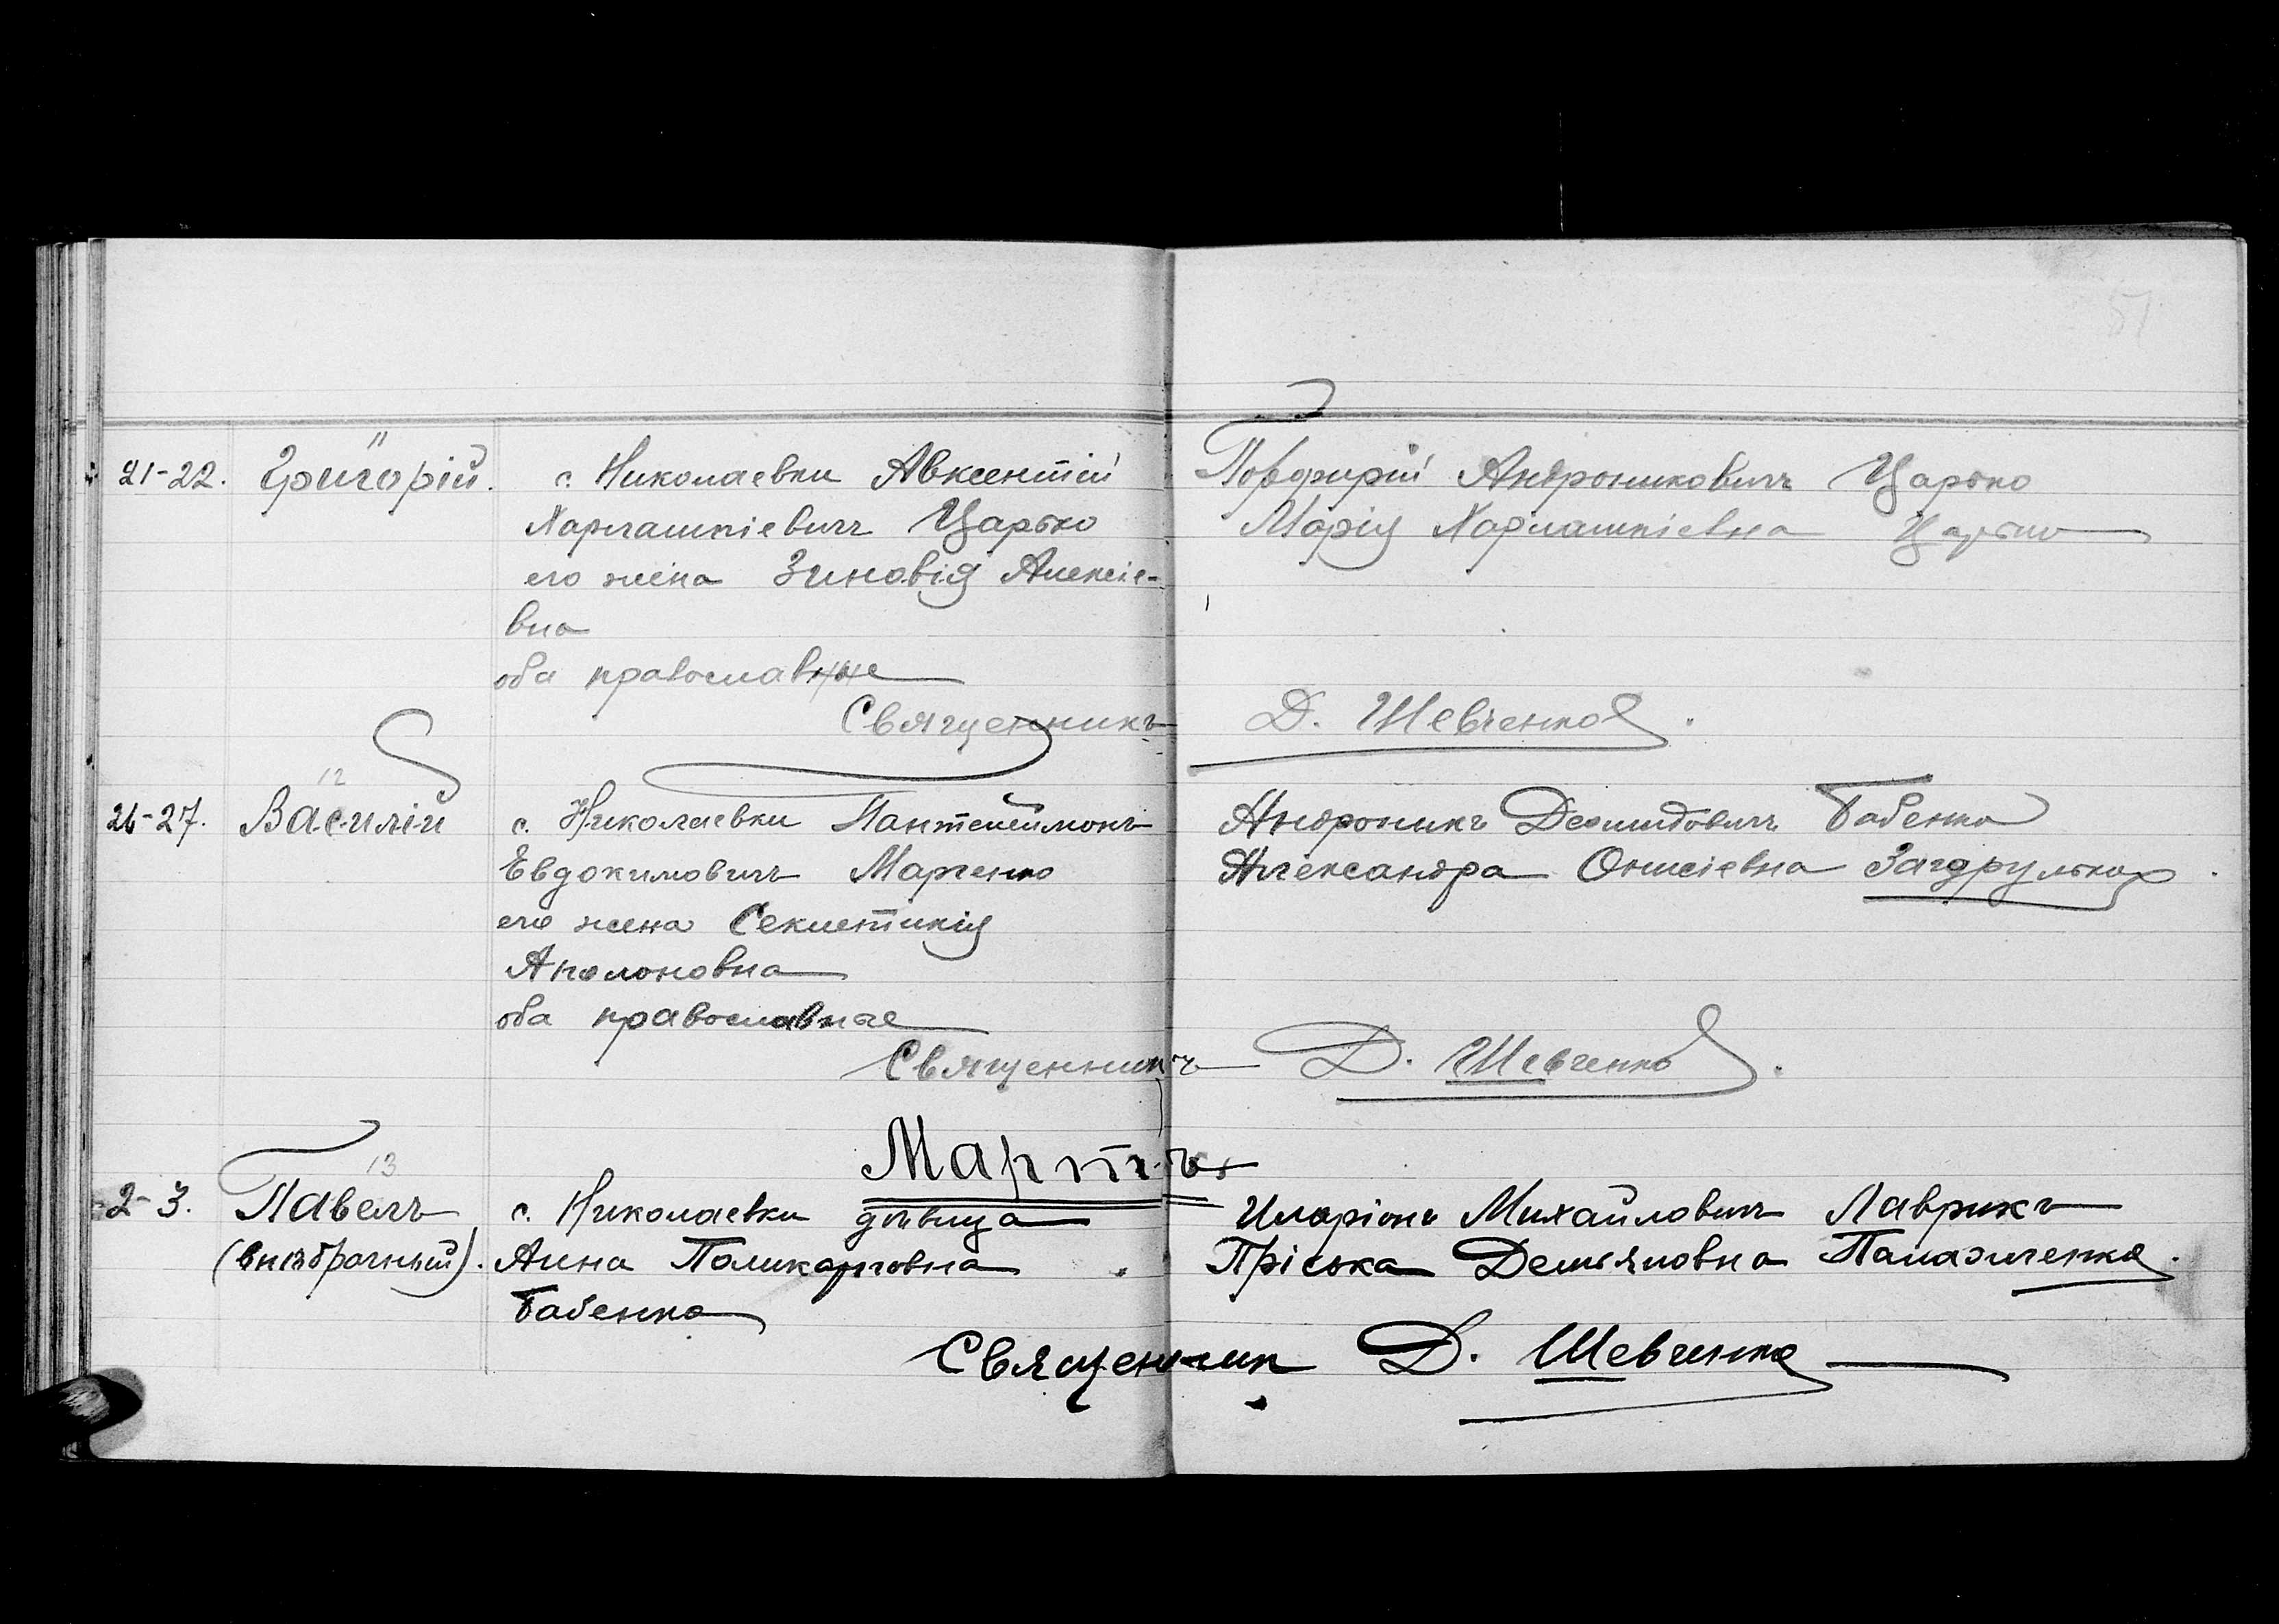 51
11
21-22. Григорій. с. Николаевки Авксентій Порфирій Андроникович Царько
Харлампіевичъ Царько Марія Харлампіевна Царько
его жена Зиновія Алексіе-
вна
оба православные
Священникъ Д. Шевченко.
12
26-27. Василій с. Николаевки Пантелеимонъ Андроникъ Деомидовичъ Бабенко
Евдокимовичъ Марченко Александра Онисіевна
его жена Секлетикія
Аполоновна
оба православные
Священникъ Д. Шевченко.
Мартъ
13
2-3. Павелъ с. Николаевки дѣвица Иларіонъ Михайловичъ Лаврикъ
(внѣбрачный). Анна Поликарповна Пріська Демьяновна
Бабенко
Священник Д. Шевченко